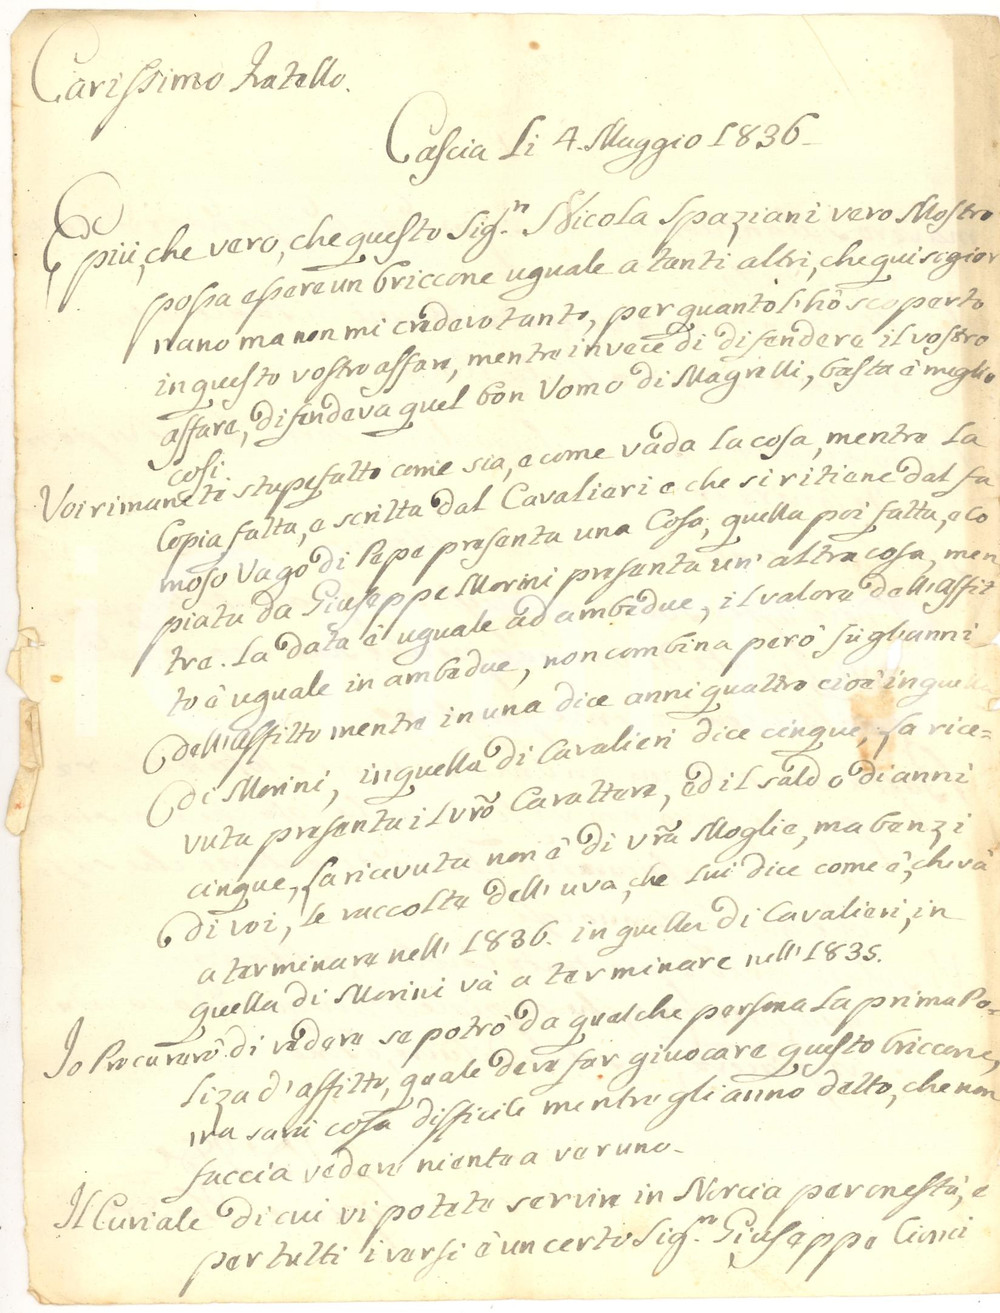 Carissimo Fratello.
Cascia li 4. Maggio 1836
È più, che vero, che questo Sig.n Nicola Spaziani vero Mostro
possa essere un briccone uguale a tanti altri, che qui sogior
nano ma non mi credevo tanto, per quanto l'hò scoperto
in questo vostro affare, mentre invece di difendere il vostro
affare, difendeva quel bon Uomo di Magrelli, basta è meglio
così
Voi rimanete stupefatto come sia, e come vada la cosa, mentre la
Copia fatta, e scritta dal Cavalieri e che si ritiene dal fa
moso Vago di Pepe presenta una Cosa, quella poi fatta, e co
piata da Giuseppe Morini presenta un'altra cosa, men
tre. La data è uguale ad ambedue, il valore dell'Affit
to è uguale in ambedue, non combina però sù gl'anni
dell'affitto mentre in una dice anni quattro cioè in quella
di Morini, in quella di Cavalieri dice cinque, la rice=
vuta presenta il vro Carattere, ed il saldo di anni
cinque, la ricevuta non è di vra Moglie, ma benzi
di voi, le raccolte dell'uva, che lui dice come è, che và
a terminare nell'1836. in quella di Cavalieri, in
quella di Morini và a terminare nell'1835.
Io Procurerò di vedere se potrò da qualche persona la prima Po=
liza d'affitto, quale deve far giuocare questo briccone,
ma sarà cosa difficile mentre gli anno detto, che non
faccia vedere niente a veruno.
Il Curiale di cui vi potete servire in Norcia per onestà, e
per tutti i versi è un certo Sig.n Giuseppe